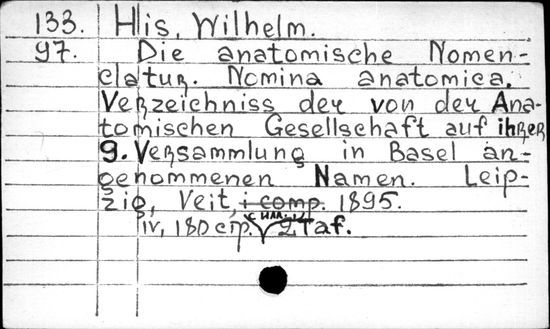 133. His, Wilhelm.
97. Die anatomische Nomen-
clatur. Nomina anatomica.
Verzeichniss der von der Ana-
tomischen Gesellschaft auf ihrer
9. Versammlung in Basel an-
genommenen Namen. Leip-
zig, Veit, i comp. 1895.
IV, 180 стр. 2 Taf.